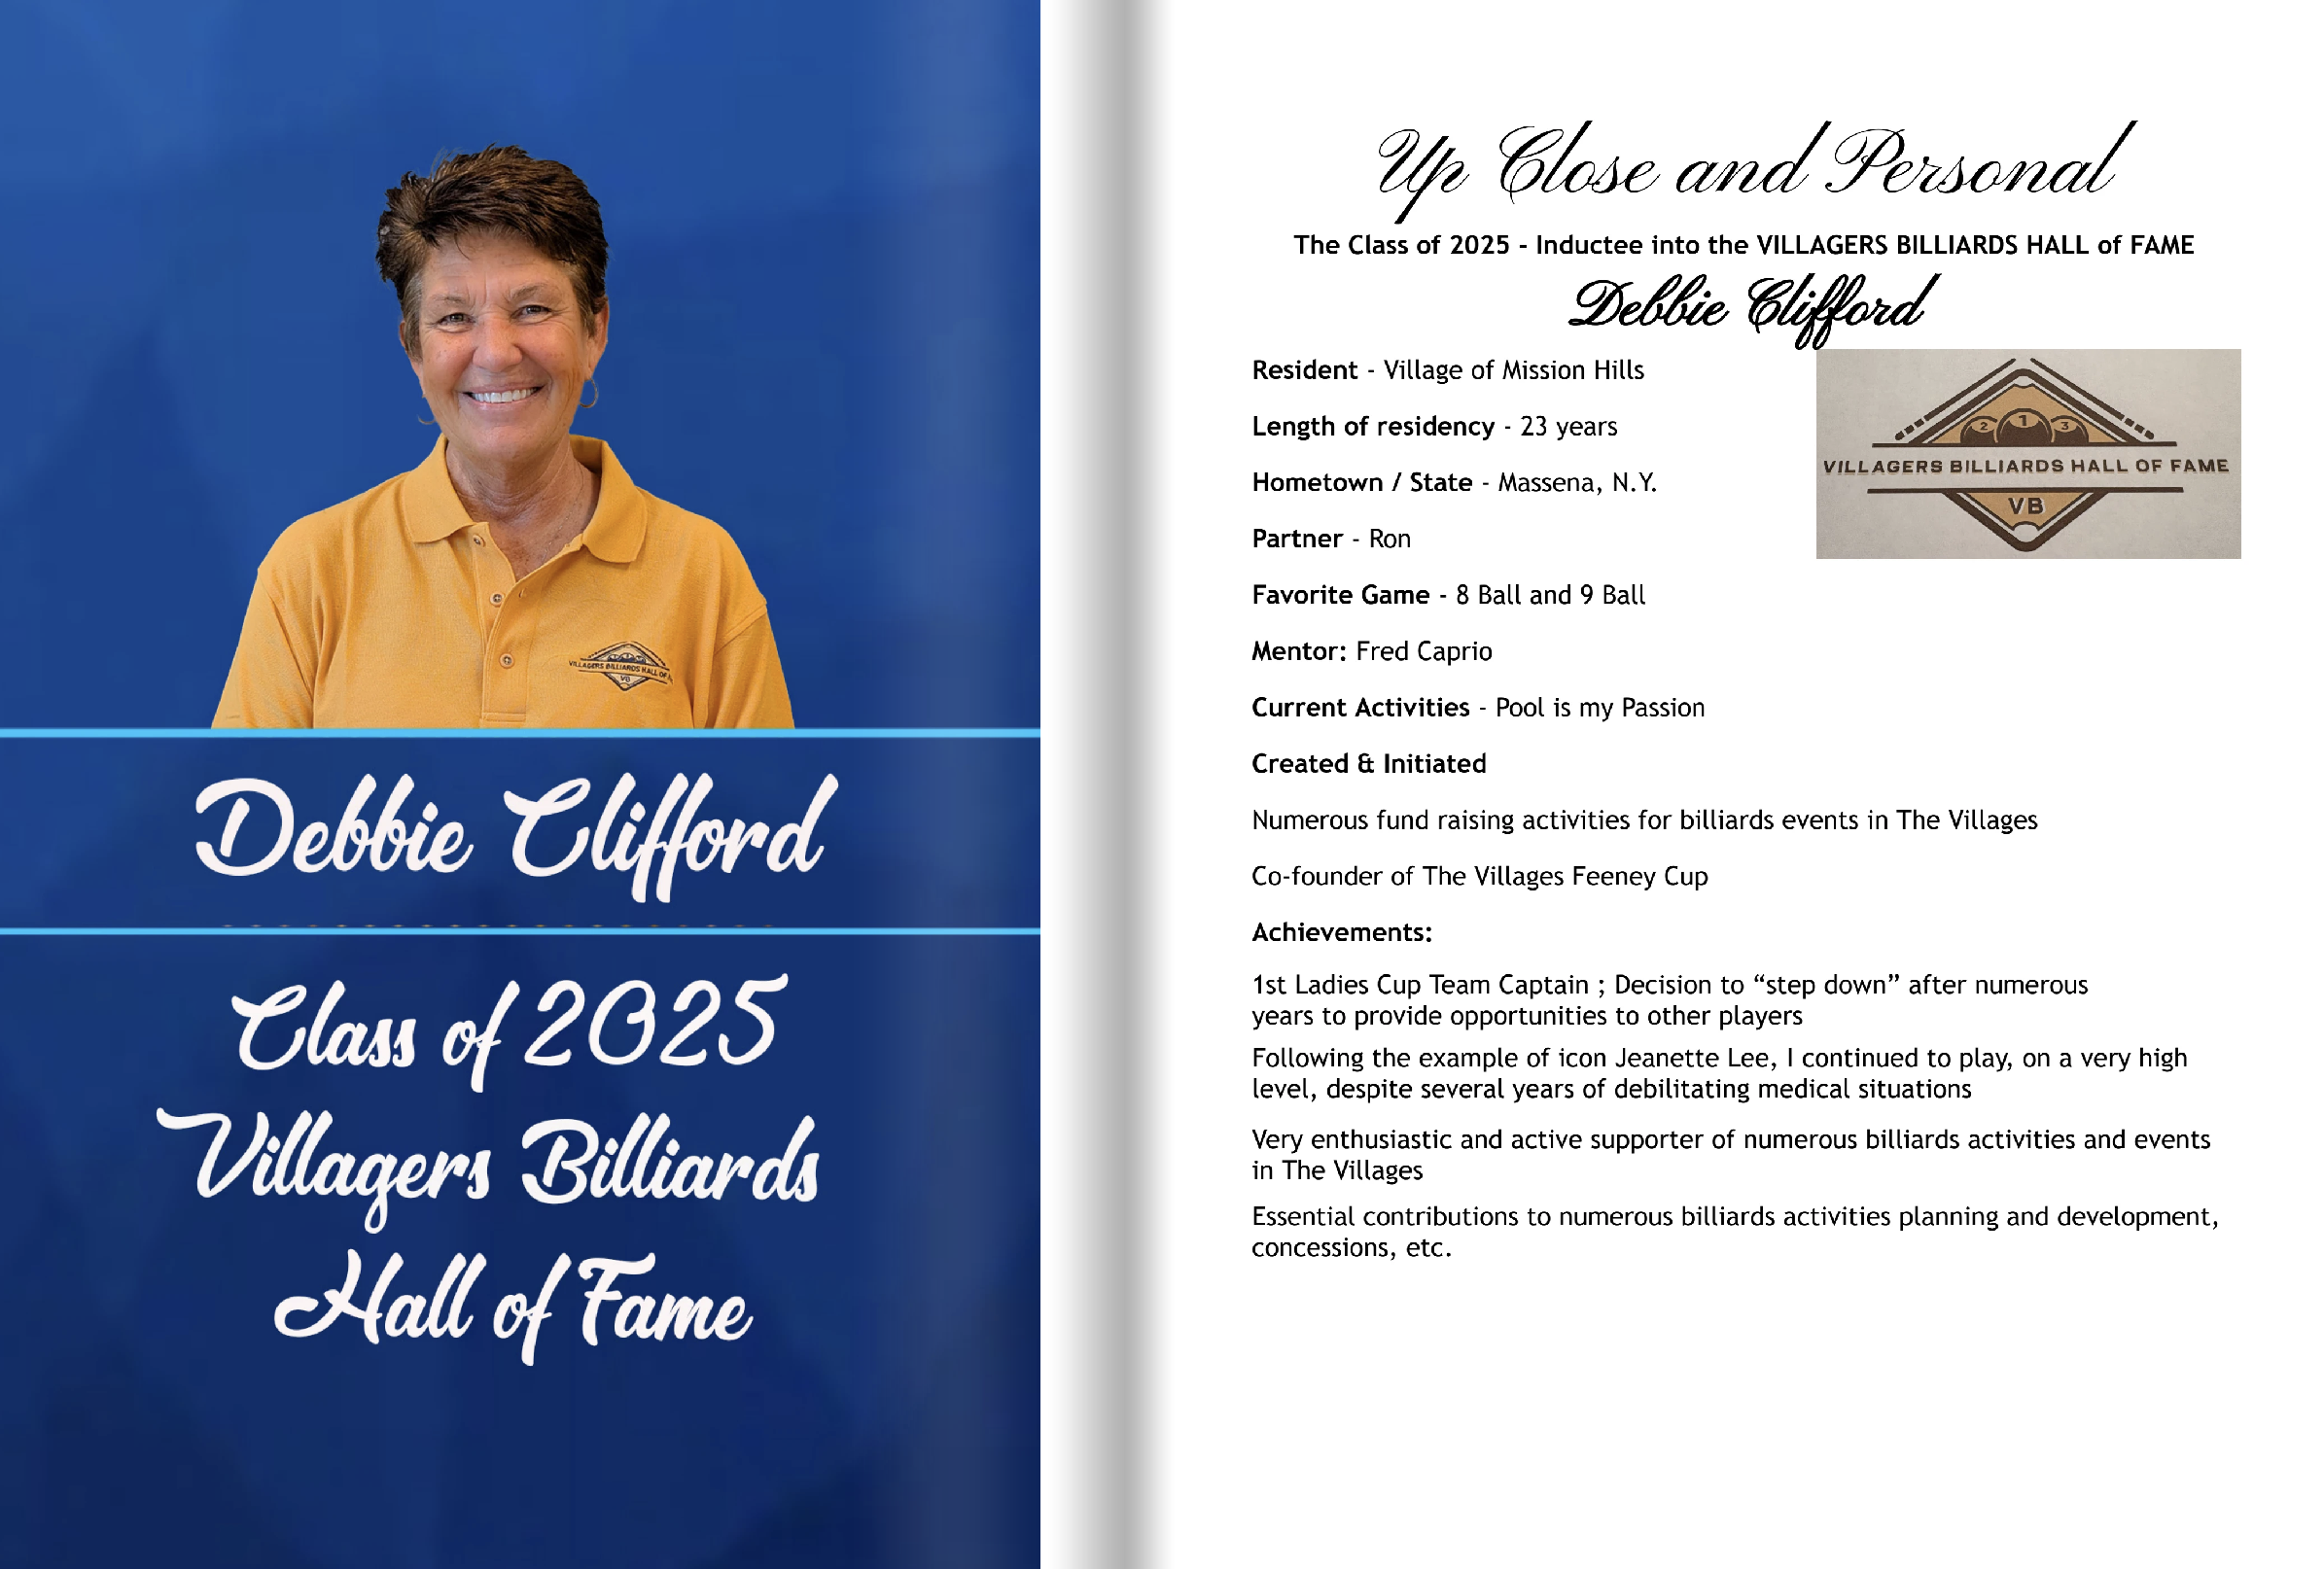 Debbie Clifford
Class of 2025
Villagers Billiards
Hall of Fame
Up Close and Personal
The Class of 2025 - Inductee into the VILLAGERS BILLIARDS HALL of FAME
Debbie Clifford
Resident - Village of Mission Hills
Length of residency - 23 years
Hometown / State - Massena, N.Y.
Partner - Ron
Favorite Game - 8 Ball and 9 Ball
Mentor: Fred Caprio
Current Activities - Pool is my Passion
Created & Initiated
Numerous fund raising activities for billiards events in The Villages
Co-founder of The Villages Feeney Cup
Achievements:
1st Ladies Cup Team Captain ; Decision to “step down” after numerous
years to provide opportunities to other players
Following the example of icon Jeanette Lee, I continued to play, on a very high
level, despite several years of debilitating medical situations
Very enthusiastic and active supporter of numerous billiards activities and events
in The Villages
Essential contributions to numerous billiards activities planning and development,
concessions, etc.
2 1 3
VILLAGERS BILLIARDS HALL OF FAME
VB
VILLAGERS BILLIARDS HALL OF
VB